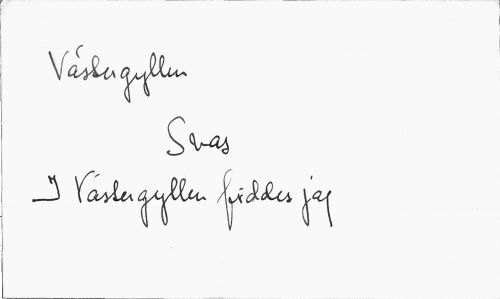 Västergyllen
Svas
I Västergyllen föddes jag